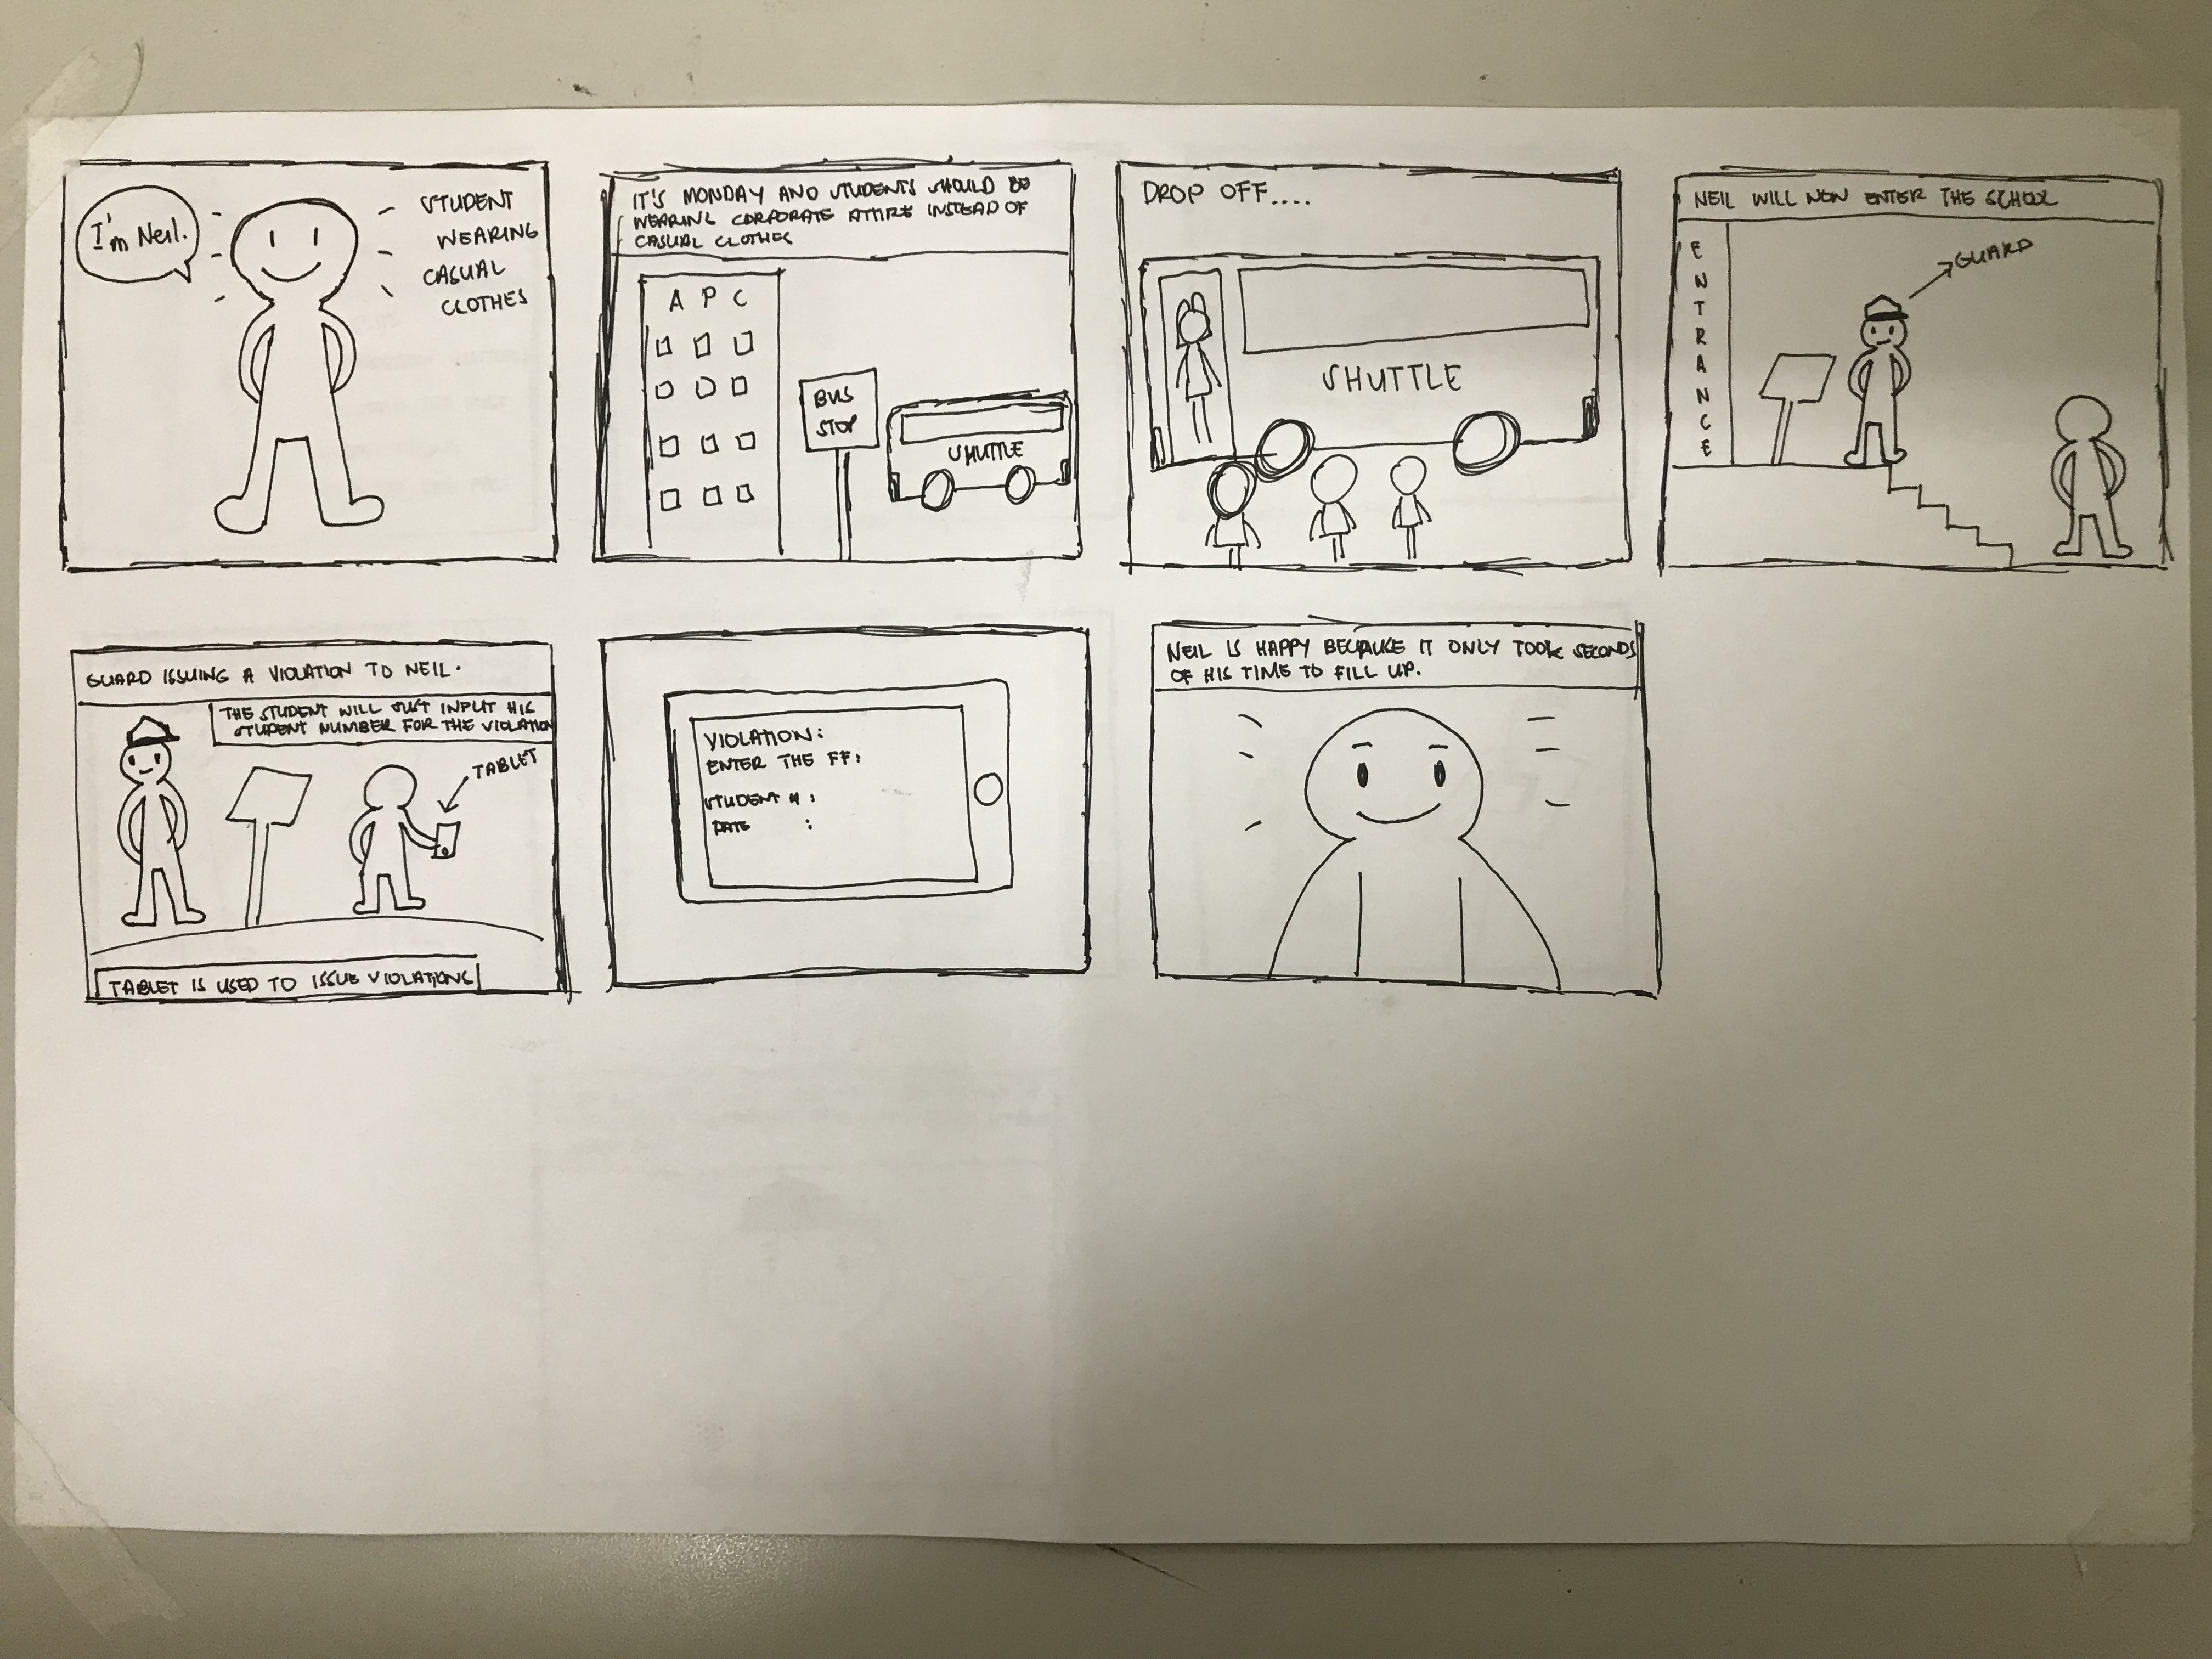 I'm Neil.
STUDENT
WEARING
CASUAL
CLOTHES
IT'S MONDAY AND STUDENTS SHOULD BE
WEARING CORPORATE ATTIRE INSTEAD OF
CASUAL CLOTHES
A P C
BUS
STOP
SHUTTLE
DROP OFF.....
SHUTTLE
NEIL WILL NOW ENTER THE SCHOOL
ENTRANCE
GUARD
GUARD ISSUING A VIOLATION TO NEIL.
THE STUDENT WILL JUST INPUT HIS
STUDENT NUMBER FOR THE VIOLATION
TABLET
TABLET IS USED TO ISSUE VIOLATIONS
VIOLATION:
ENTER THE FF:
STUDENT # :
DATE :
NEIL IS HAPPY BECAUSE IT ONLY TOOK SECONDS
OF HIS TIME TO FILL UP.